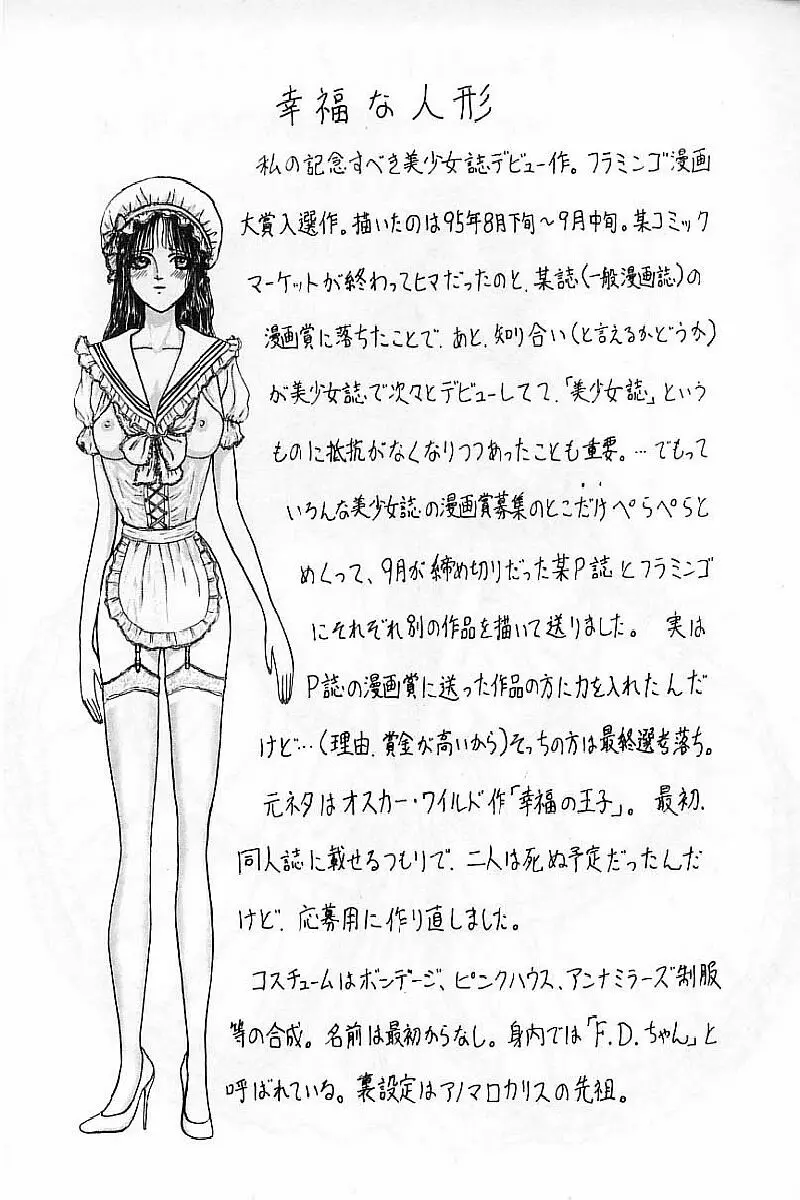 幸福な人形
私の記念すべき美少女誌デビュー作。フラミンゴ漫画
大賞入選作。描いたのは95年8月下旬～9月中旬。某コミック
マーケットが終わってヒマだったのと、某誌(一般漫画誌)の
漫画賞に落ちたことで、あと、知り合い(と言えるかどうか)
が美少女誌で次々とデビューしてて、「美少女誌」という
ものに抵抗がなくなりつつあったことも重要。…でもって
いろんな美少女誌の漫画賞募集のとこだけぺらぺらと
めくって、9月が締め切りだった某P誌とフラミンゴ
にそれぞれ別の作品を描いて送りました。 実は
P誌の漫画賞に送った作品の方に力を入れたんだ
けど…(理由、賞金が高いから)そっちの方は最終選考落ち。
元ネタはオスカー・ワイルド作「幸福の王子」。 最初、
同人誌に載せるつもりで、二人は死ぬ予定だったんだ
けど、応募用に作り直しました。
コスチュームはボンデージ、ピンクハウス、アンナミラーズ制服
等の合成。名前は最初からなし。身内では「F.D.ちゃん」と
呼ばれている。裏設定はアノマロカリスの先祖。